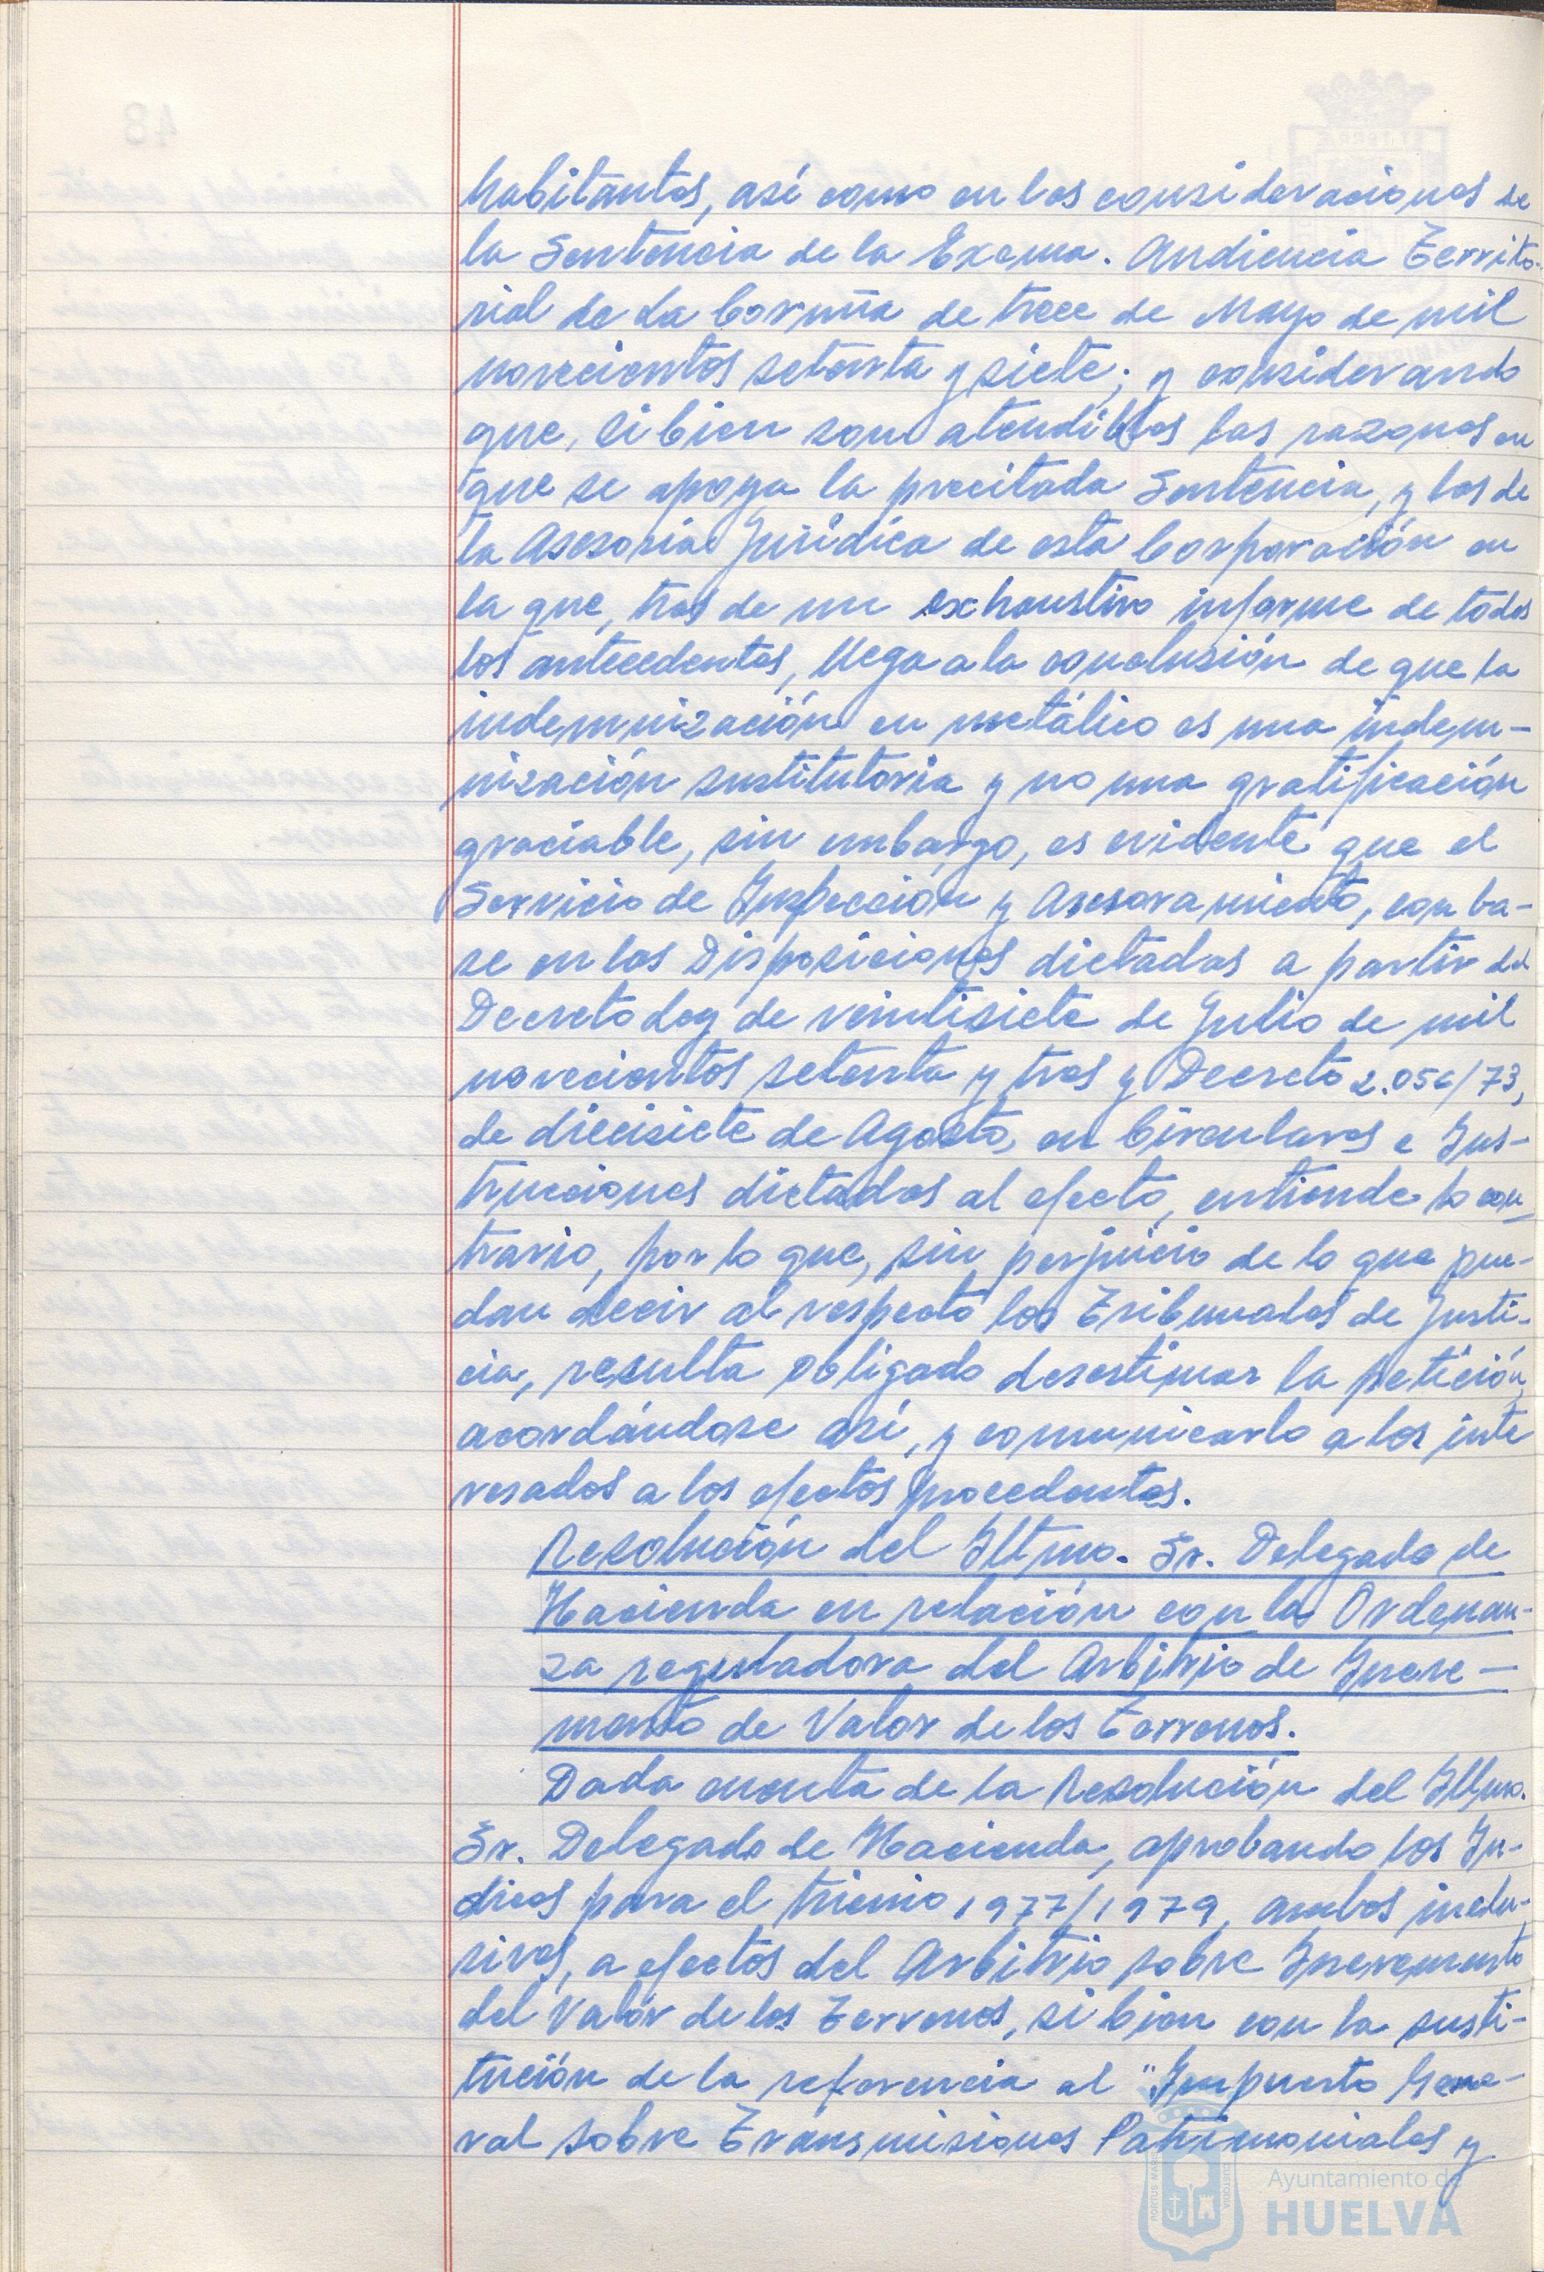 habitantes, así como en las consideraciones de
la Sentencia de la Excma. Audiencia Territo-
rial de La Coruña de trece de Mayo de mil
novecientos setenta y siete; y considerando
que, si bien son atendibles las razones en
que se apoya la precitada Sentencia, y las de
la Asesoria Jurídica de esta Corporación en
la que, tras de un exhaustivo informe de todos
los antecedentes, llega a la conclusión de que la
indemnización en metálico es una indem-
nización sustitutoria y no una gratificación
graciable, sin embargo, es evidente que el
Servicio de Inspección y Asesoramiento, con ba-
se en las Disposiciones dictadas a partir del
Decreto Ley de veintisiete de Julio de mil
novecientos setenta y tres y Decreto 2.056/73,
de diecisiete de Agosto, en Circulares e Ins-
trucciones dictadas al efecto, entiende lo con
trario, por lo que, sin perjuicio de lo que pue-
dan decir al respecto los Tribunales de Justi-
cia, resulta obligado desestimar la petición,
acordándose así, y comunicarlo a los inte
resados a los efectos procedentes.
Resolución del Iltmo. Sr. Delegado de
Hacienda en relación con la Ordenan-
za reguladora del Arbitrio de Incre-
mento de Valor de los Terrenos.
Dada cuenta de la Resolución del Iltmo.
Sr. Delegado de Hacienda, aprobando los Ín-
dices para el trienio 1977/1979, ambos inclu-
sives, a efectos del Arbitrio sobre Incremento
del Valor de los Terrenos, si bien con la susti-
tución de la referencia al "Impuesto Gene-
ral sobre Transmisiones Patrimoniales y
Ayuntamiento de
HUELVA